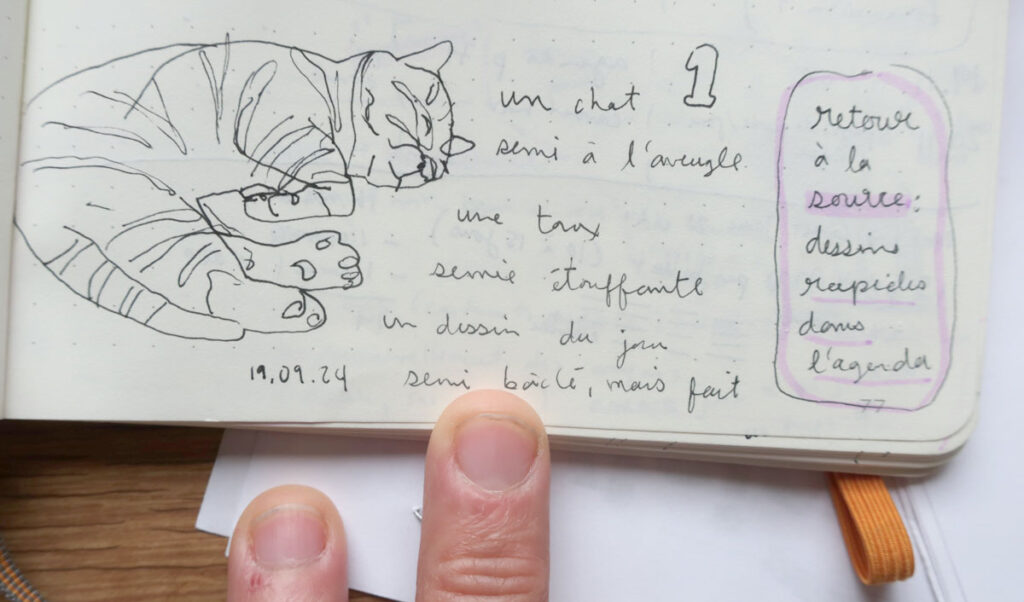 1
un chat
semi à l'aveugle
une toux
semie étouffante
un dessin du jour
semi bâclé, mais fait
19.09.24
retour
à la
source:
dessins
rapides
dans
l'agenda
77